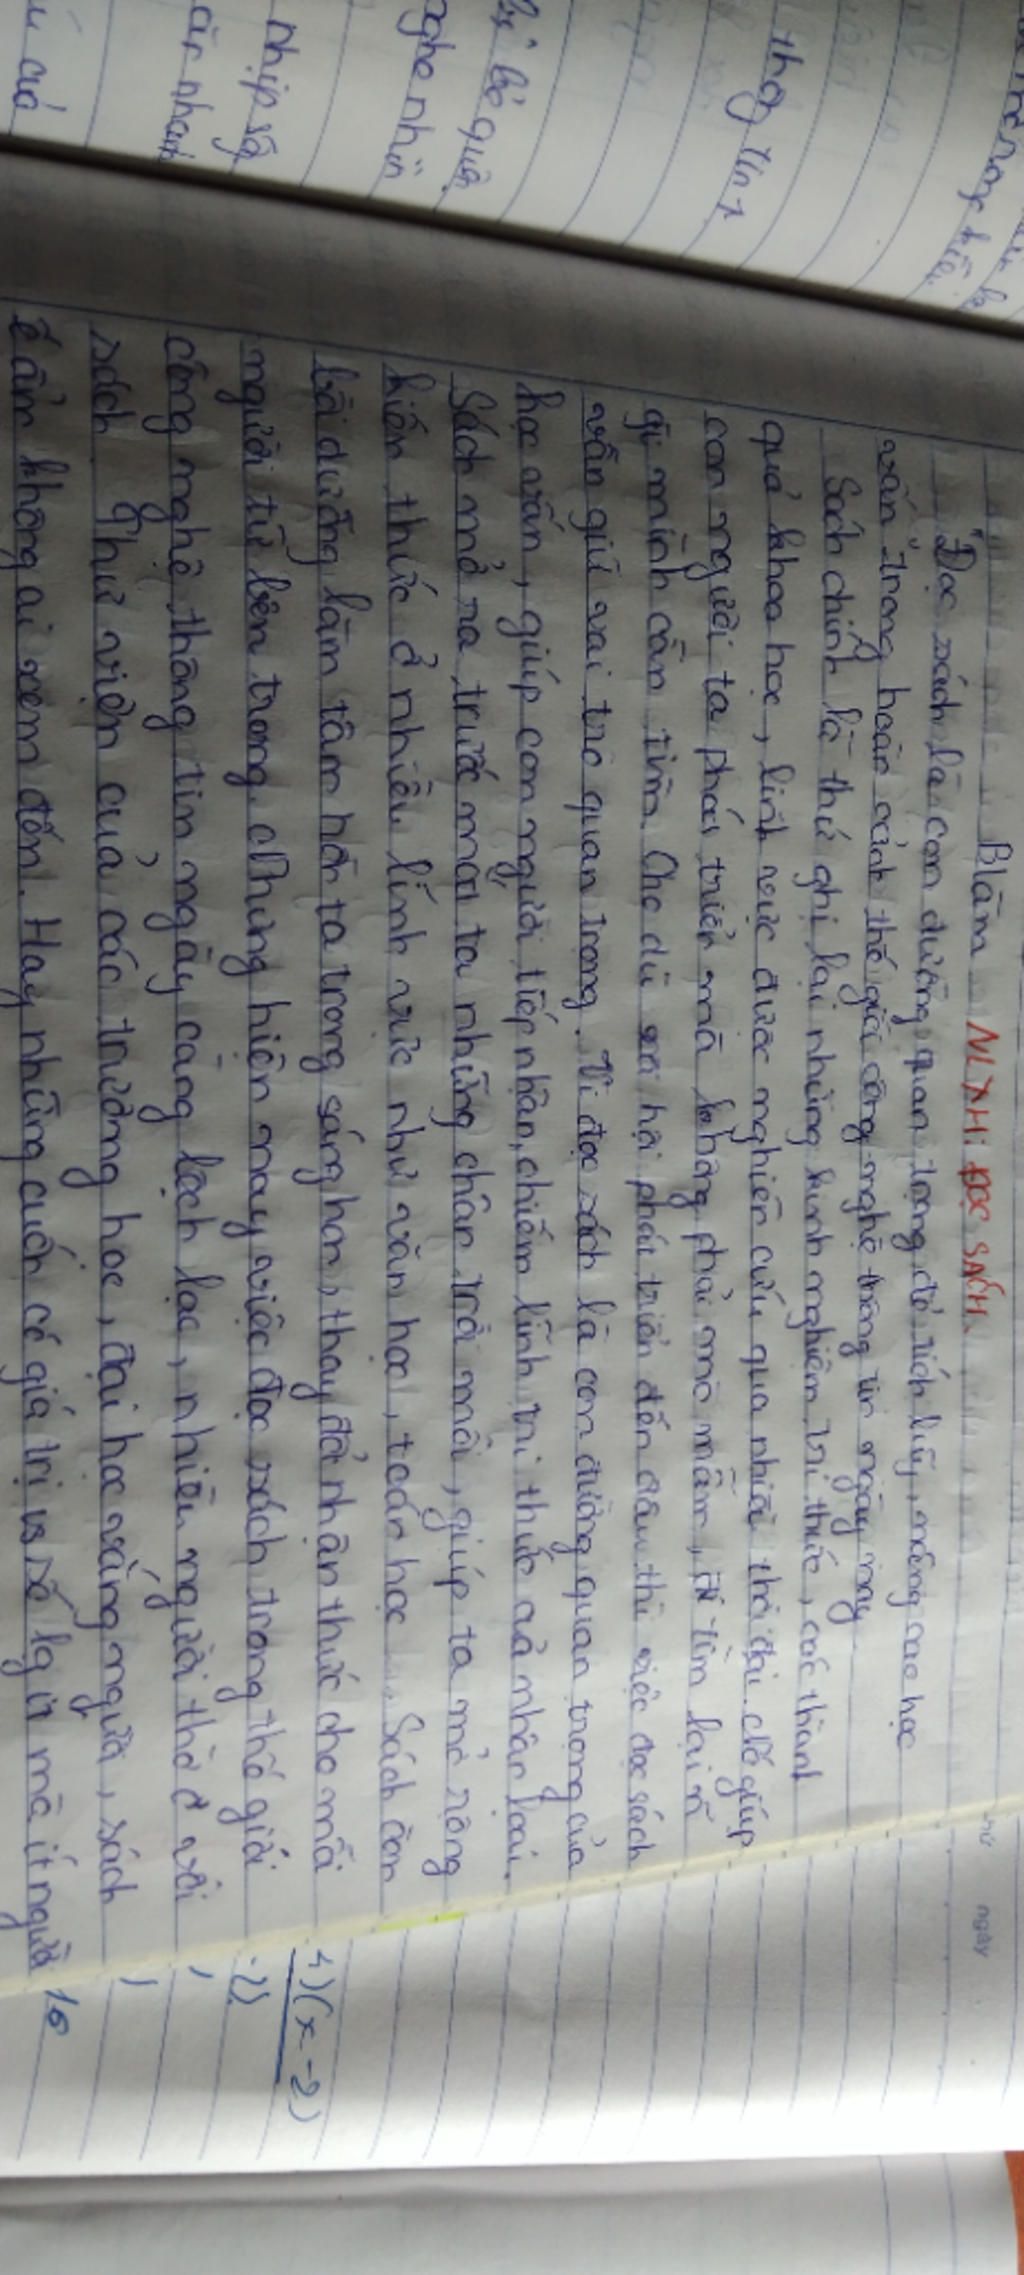 Blàm NLXH: ĐỌC SÁCH.
"Đọc sách là con đường quan trọng để tích lũy, nâng cao học
vấn" trong hoàn cảnh thế giới công nghệ thông tin ngày nay
Sách chính là thứ ghi lại những kinh nghiệm, tri thức, các thành
quả khoa học, lĩnh vực được nghiên cứu qua nhiều thời đại. để giúp
con người ta phát triển mà không phải mò mẫm, đi tìm lại
gì mình cần tìm. Cho dù xã hội phát triển đến đâu thì việc đọc sách
vẫn giữ vai trò quan trọng. Vì đọc sách là con đường quan trọng của
học vấn, giúp con người tiếp nhận, chiếm lĩnh tri thức của nhân loại.
Sách mở ra trước mắt ta những chân trời mới, giúp ta mở rộng
kiến thức ở nhiều lĩnh vực như văn học, toán học ... Sách còn
bồi dưỡng làm tâm hồn ta trong sáng hơn, thay đổi nhận thức cho mỗi
người từ bên trong. Nhưng hiện nay việc đọc sách trong thế giới
công nghệ thông tin ngày càng lệch lạc, nhiều người thờ ơ với
sách. Thư viện của các trường học, đại học vắng người, sách
ế ẩm không ai xem đến. Hay những cuốn có giá trị vs số lg ít mà ít người
thông tin
bị bỏ quên
nghe nhìn
nhịp sống
cần nhanh
cá
thứ ngày
1)(x-2)
10